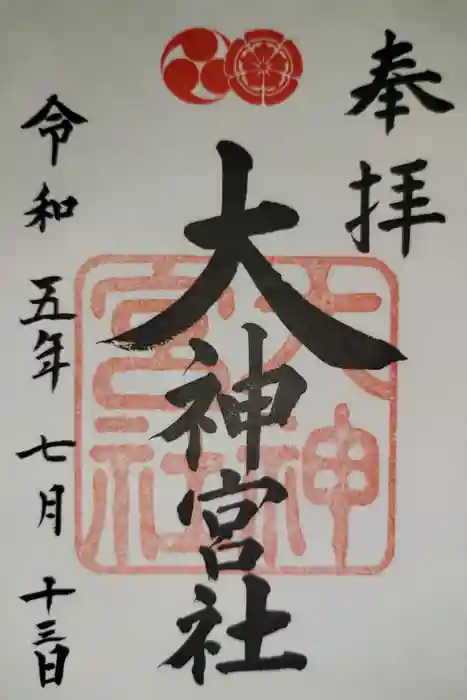 奉拝
大神宮社
大神宮社
令和五年七月十三日